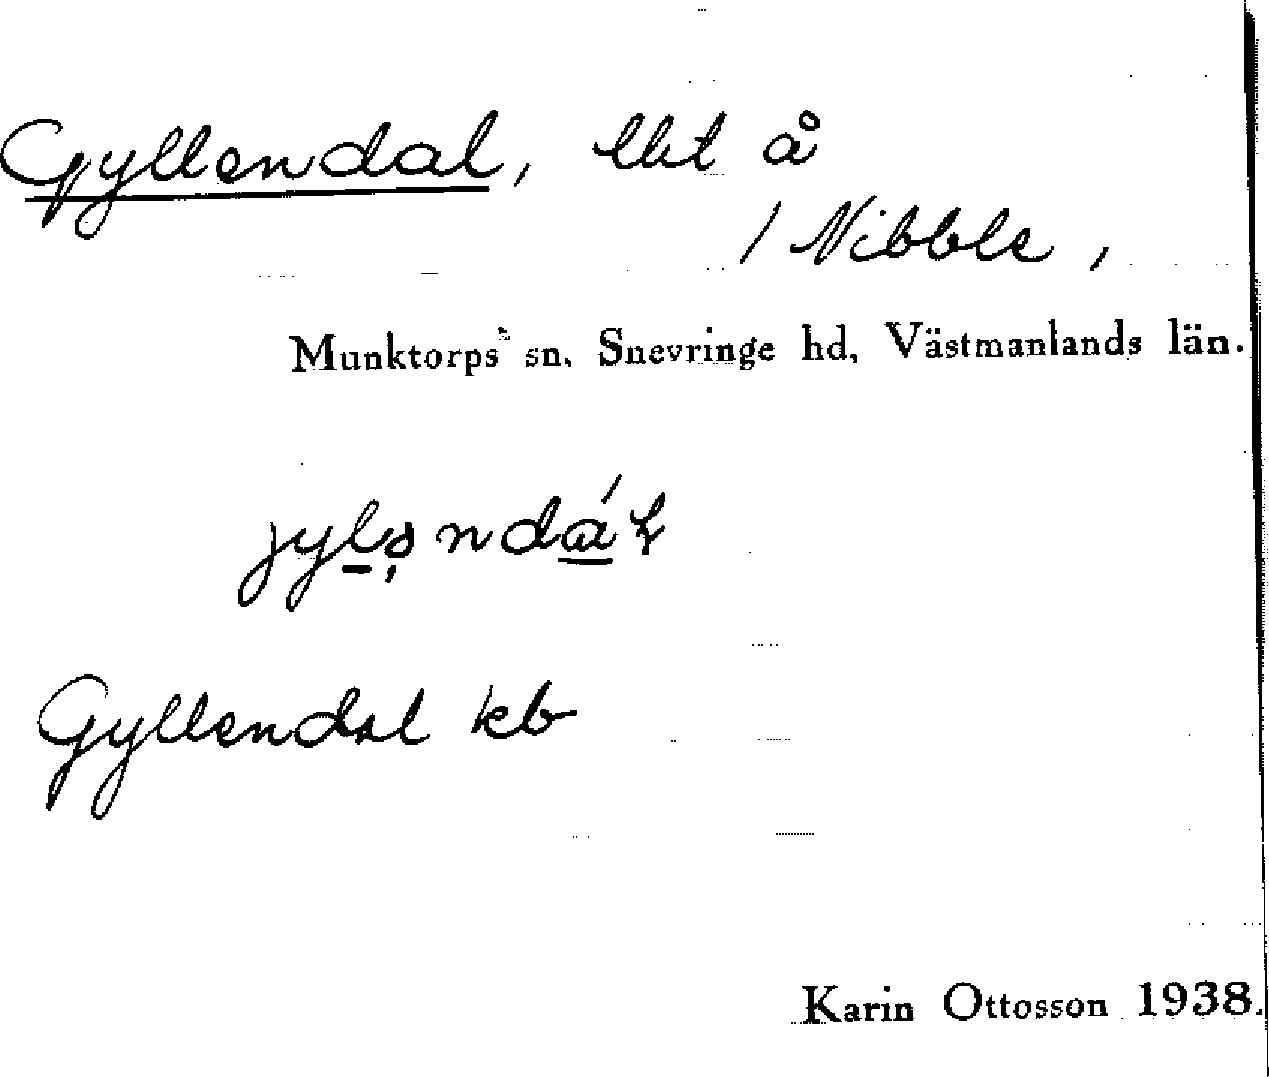 Gyllendal, lht å
/ Nibble,
Munktorps sn, Snevringe hd, Västmanlands län.
Gyllendal kb
Karin Ottosson 1938.